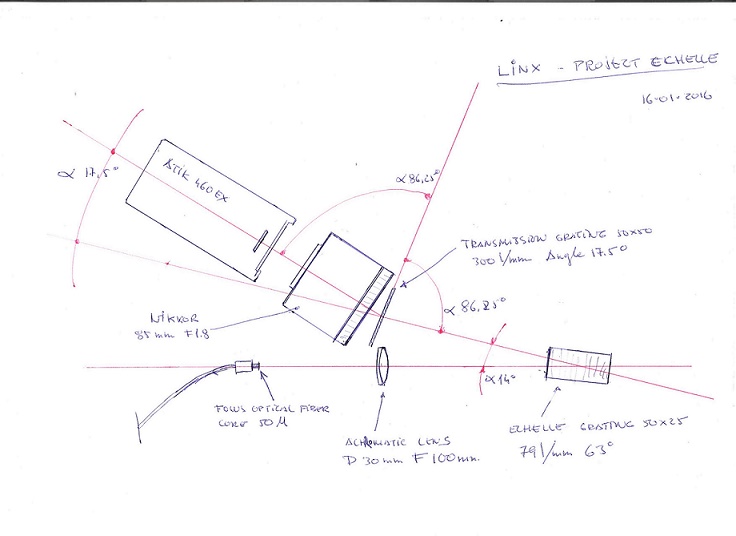 LINX - PROJECT ECHELLE
16-01-2016
α 17,5°
ATIK 460EX
α 86,25°
TRANSMISSION GRATING 50x50
300 l/mm Angle 17.5°
α 86,25°
NIKKOR
85 mm F1.8
α 14°
FOLUS OPTICAL FIBER
CORE 50 μ
ACHROMATIC LENS
D 30mm F 100mm.
ECHELLE GRATING 50x25
79 l/mm 63°